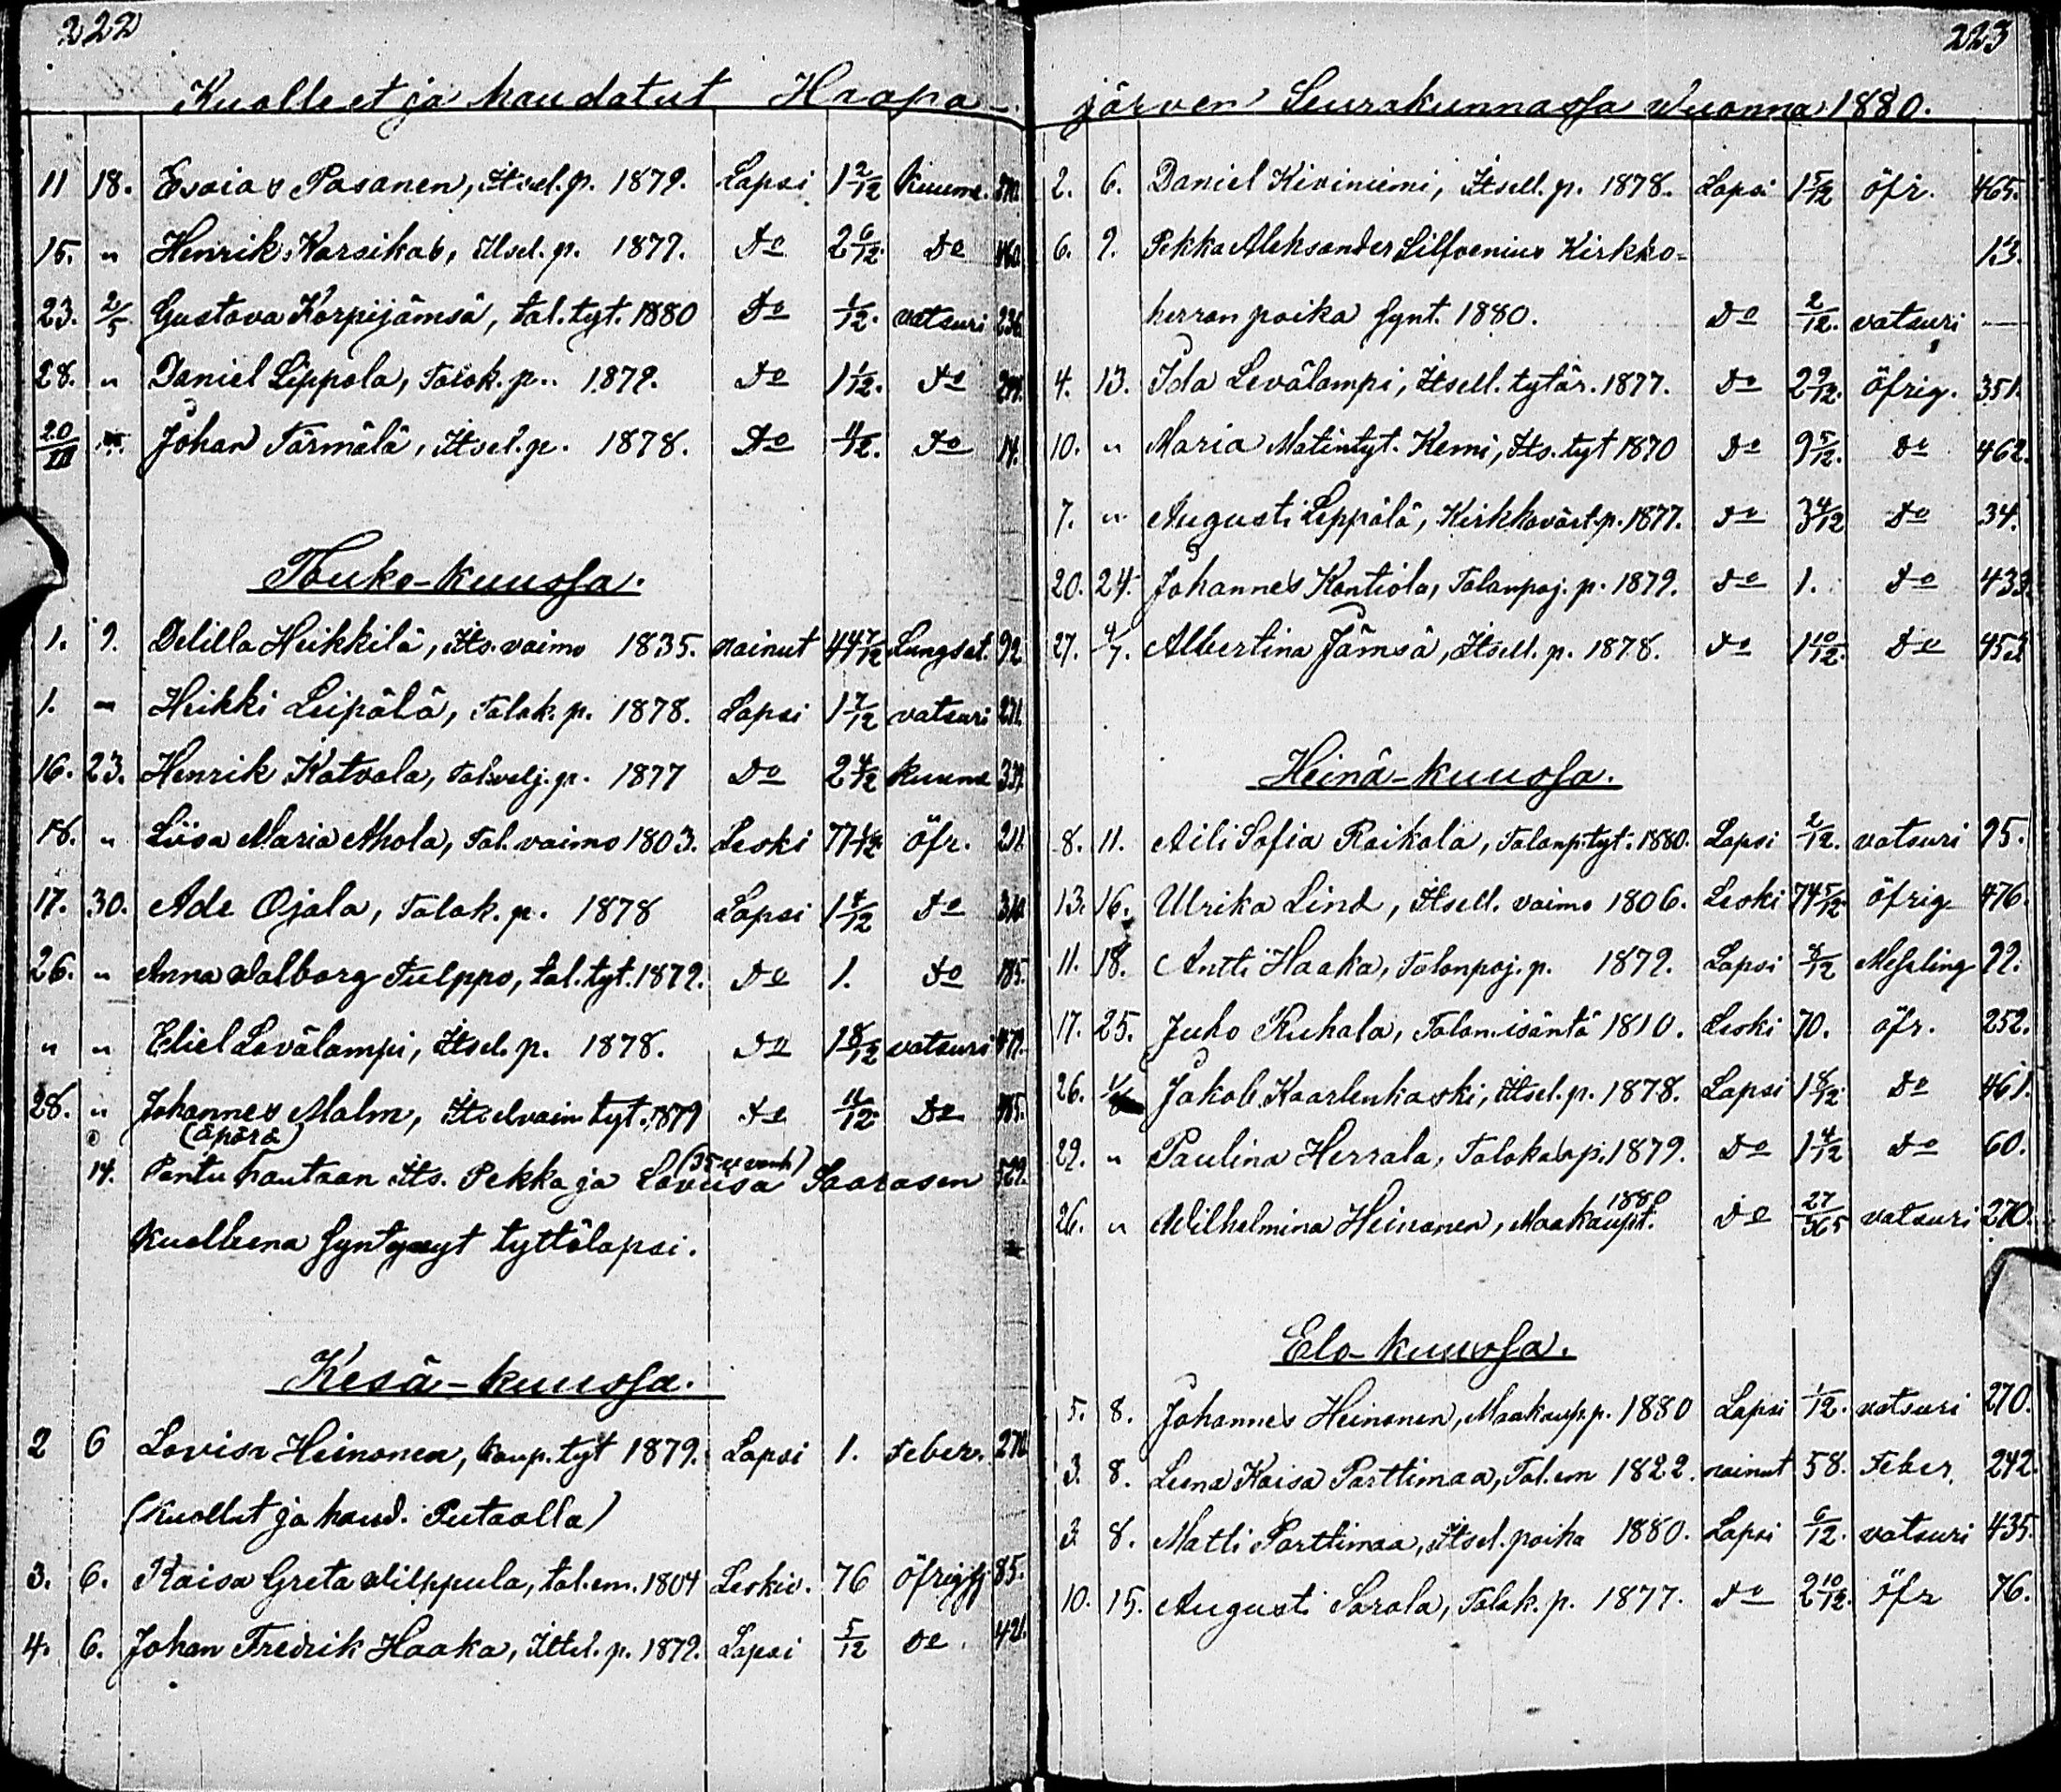 222
Kuolleet ja haudatut Haapa-
11 18. Esaias Pasanen, Itsel. p. 1879. Lapsi 1 2/12 Kuume.
15. " Henrik Karsikas, Itsel. p. 1877. Do 2 6/12. Do
23. 2/5 Gustava Korpijämsä, tal. tyt. 1880 Do 1/12. vatsuri 236
28. " Daniel Lippola, Talok. p. 1879. Do 1 1/12. Do
20/III Johan Törmälä, Itsel. p. 1878. Do Do 14.
Touko-kuussa.
1. 9. Delilla Heikkilä, Its. vaimo 1835. nainut 44 7/12 Lungsot. 92
1. " Heikki Leipälä, Talok. p. 1878. Lapsi 1 7/12 vatsuri 271.
16. 23. Henrik Katvala, Talvelj. p. 1877 Do 2 4/12 kuume 339.
18. " Liisa Maria Ahola, Tal. vaimo 1803. Leski 77 1/12. öfr. 211.
17. 30. Ade Ojala, Talok. p. 1878 Lapsi 1 7/12 Do 310.
26. " Anna Valborg Tulppo, tal. tyt. 1879. Do 1. Do 185.
" " Eliel Levälampi, Itsel. p. 1878. Do 1 8/12 vatsuri 479.
28. " Johannes Malm, Itselvain tyt. 1879 Do 11/12. Do
(äpärä) (35 v. vanh)
14. Pantu hautaan Its. Pekka ja Lovisa Saarasen 529.
kuolleena syntynyt tyttölapsi.
Kesä-kuussa.
2 6 Lovisa Heinonen, kaup. tyt 1879. Lapsi 1. Feber. 270
(kuollut ja haud. Putaalla)
3. 6. Kaisa Greta Vilppula, tal. em. 1804 Leskiv. 76 öfrig sj 85.
4. 6. Johan Fredrik Haaka, Ittel. p. 1879. Lapsi 5/12 Do. 421.
223
järven Seurakunnassa Vuonna 1880.
2. 6. Daniel Kiviniemi, Itsell. p. 1878. Lapsi 1 5/12 öfr. 465.
6. 9. Pekka Aleksander Lilfvenius Kirkko- 13.
herran poika synt. 1880. Do 2/12. vatsuri —
4. 13. Ida Levälampi, Itsell. tytär. 1877. Do 2 9/12. öfrig. 351.
10. " Maria Matintyt. Kemi, Its. tyt 1870 Do 9 5/12. Do 462.
7. " Augusti Leppälä, Kirkkovärt. p. 1877. Do 3 4/12 Do 34.
20. 24. Johannes Kontiola, Talonpoj. p. 1879. Do 1. Do 433.
27. 4/7. Albertina Jämsä, Itsell. p. 1878. Do 1 10/12. Do 453
Heinä-kuussa.
8. 11. Aili Sofia Raikala, Talonp. tyt. 1880. Lapsi 2/12. vatsuri 95.
13. 16. Ulrika Lind, Itsell. vaimo 1806. Leski 74 5/12 öfrig 476.
11. 18. Antti Haaka, Talonpoj. p. 1879. Lapsi 8/12 Messling 22.
17. 25. Juho Ruhala, Talon. isäntä 1810. Leski 70. öfr. 252.
26. 1/8 Jakob Kaarlenkaski, Itsel. p. 1878. Lapsi 1 8/12 Do 461.
29. " Paulina Herrala, Talok. lapi. 1879. Do 1 4/12 Do 60.
26. " Vilhelmina Heinonen, Maakaupt. 1880 Do 27/365 vatsuri 270.
Elo-kuussa.
5. 8. Johannes Heinonen, Maakaup. p. 1880 Lapsi 1/12. vatsuri 270.
3. 8. Leena Kaisa Parttimaa, Tal. em 1822. nainut 58. Feber. 242.
3 8. Matti Parttimaa, Itsel. poika 1880. Lapsi 6/12. vatsuri 435.
10. 15. Augusti Sarala, Talok. p. 1877. Do 2 10/12. öfr 76.